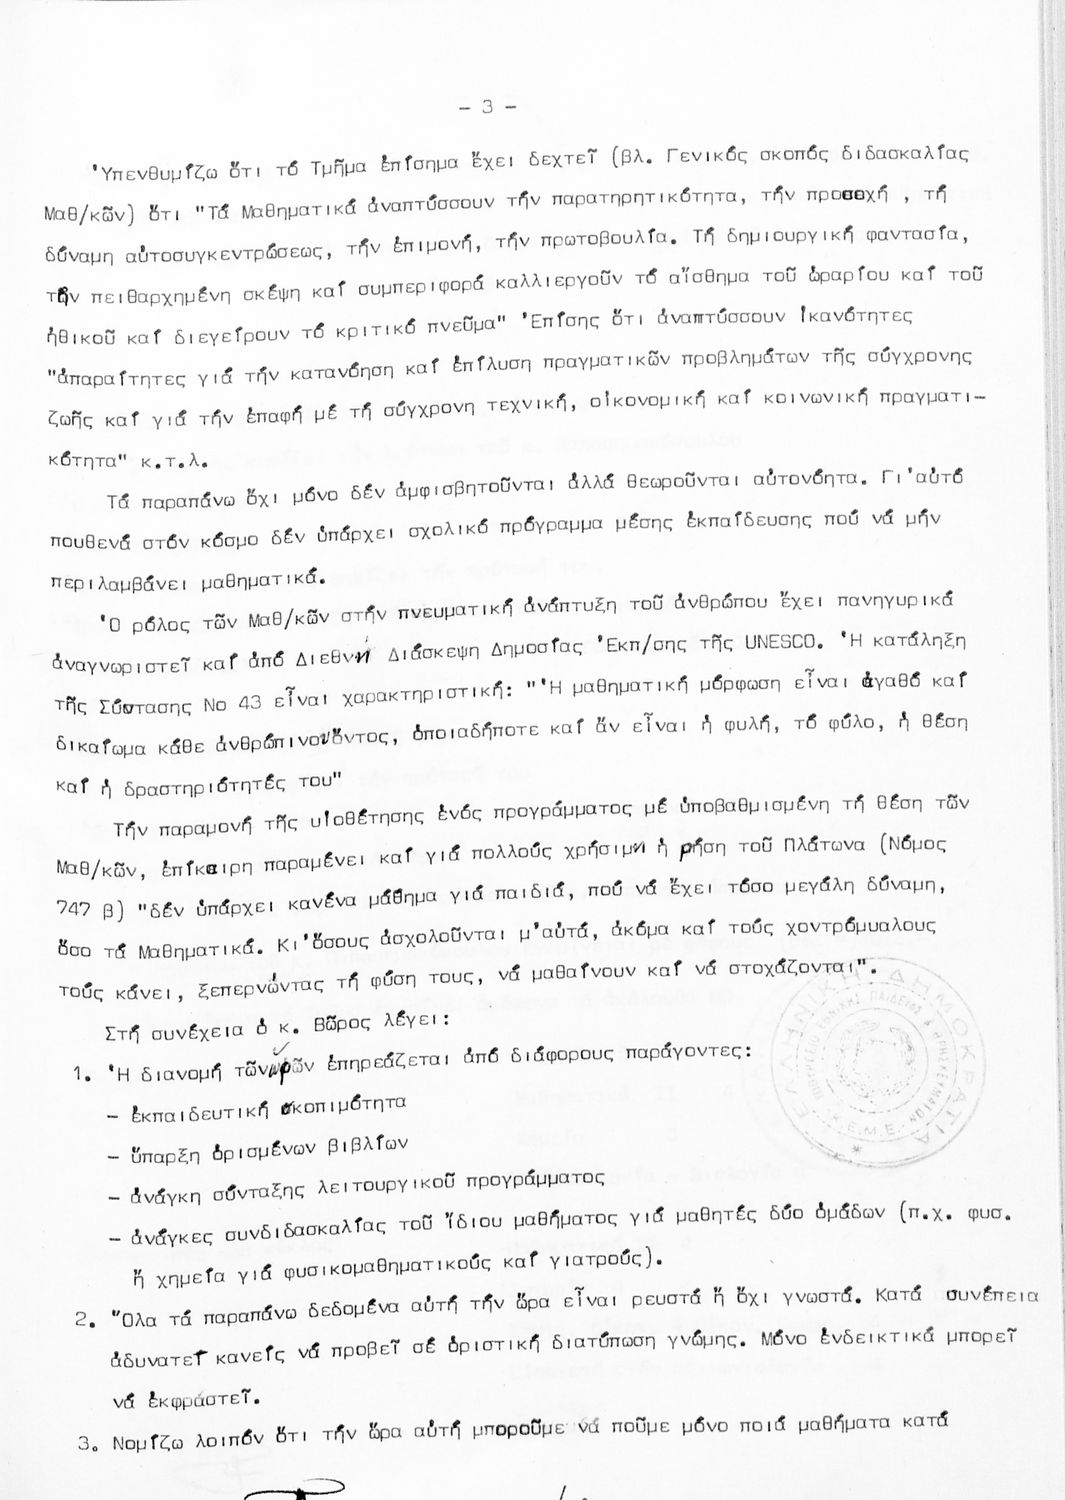 - 3 -
Ὑπενθυμίζω ὅτι τό Τμῆμα ἐπίσημα ἔχει δεχτεῖ (βλ. Γενικός σκοπός διδασκαλίας
Μαθ/κῶν) ὅτι "Τά Μαθηματικά ἀναπτύσσουν τήν παρατηρητικότητα, τήν προσοχή , τή
δύναμη αὐτοσυγκεντρώσεως, τήν ἐπιμονή, τήν πρωτοβουλία. Τή δημιουργική φαντασία,
τήν πειθαρχημένη σκέψη καί συμπεριφορά καλλιεργοῦν τό αἴσθημα τοῦ ὡραρίου καί τοῦ
ἠθικοῦ καί διεγείρουν τό κριτικό πνεῦμα" Ἐπίσης ὅτι ἀναπτύσσουν ἱκανότητες
"ἀπαραίτητες γιά τήν κατανόηση καί ἐπίλυση πραγματικῶν προβλημάτων τῆς σύγχρονης
ζωῆς καί γιά τήν ἐπαφή μέ τή σύγχρονη τεχνική, οἰκονομική καί κοινωνική πραγματι-
κότητα" κ.τ.λ.
Τά παραπάνω ὄχι μόνο δέν ἀμφισβητοῦνται ἀλλά θεωροῦνται αὐτονόητα. Γι'αὐτό
πουθενά στόν κόσμο δέν ὑπάρχει σχολικό πρόγραμμα μέσης ἐκπαίδευσης πού νά μήν
περιλαμβάνει μαθηματικά.
Ὁ ρόλος τῶν Μαθ/κῶν στήν πνευματική ἀνάπτυξη τοῦ ἀνθρώπου ἔχει πανηγυρικά
ἀναγνωριστεῖ καί ἀπό Διεθνή Διάσκεψη Δημοσίας Ἐκπ/σης τῆς UNESCO. Ἡ κατάληξη
τῆς Σύστασης Νο 43 εἶναι χαρακτηριστική: "Ἡ μαθηματική μόρφωση εἶναι ἀγαθό καί
δικαίωμα κάθε ἀνθρώπινουὄντος, ὁποιαδήποτε καί ἄν εἶναι ἡ φυλή, τό φύλο, ἡ θέση
καί ἡ δραστηριότητές του"
Τήν παραμονή τῆς υἱοθέτησης ἑνός προγράμματος μέ ὑποβαθμισμένη τή θέση τῶν
Μαθ/κῶν, ἐπίκαιρη παραμένει καί γιά πολλούς χρήσιμη ἡ ρήση τοῦ Πλάτωνα (Νόμος
747 β) "δέν ὑπάρχει κανένα μάθημα γιά παιδιά, πού νά ἔχει τόσο μεγάλη δύναμη,
ὅσο τά Μαθηματικά. Κι'ὅσους ἀσχολοῦνται μ'αὐτά, ἀκόμα καί τούς χοντρόμυαλους
τούς κάνει, ξεπερνώντας τή φύση τους, νά μαθαίνουν καί νά στοχάζονται".
Στή συνέχεια ὁ κ. Βῶρος λέγει:
1. Ἡ διανομή τῶνὡρῶν ἐπηρεάζεται ἀπό διάφορους παράγοντες:
- ἐκπαιδευτική σκοπιμότητα
- ὕπαρξη ὁρισμένων βιβλίων
- ἀνάγκη σύνταξης λειτουργικοῦ προγράμματος
- ἀνάγκες συνδιδασκαλίας τοῦ ἴδιου μαθήματος γιά μαθητές δύο ὁμάδων (π.χ. φυσ.
ἤ χημεία γιά φυσικομαθηματικούς καί γιατρούς).
2. Ὅλα τά παραπάνω δεδομένα αὐτή τήν ὥρα εἶναι ρευστά ἤ ὄχι γνωστά. Κατά συνέπεια
ἀδυνατεῖ κανείς νά προβεῖ σέ ὁριστική διατύπωση γνώμης. Μόνο ἐνδεικτικά μπορεῖ
νά ἐκφράστεῖ.
3. Νομίζω λοιπόν ὅτι τήν ὥρα αὐτή μποροῦμε νά ποῦμε μόνο ποιά μαθήματα κατά
ΕΛΛΗΝΙΚΗ ΔΗΜΟΚΡΑΤΙΑ
ΥΠΟΥΡΓΕΙΟ ΕΘΝΙΚΗΣ ΠΑΙΔΕΙΑΣ & ΘΡΗΣΚΕΥΜΑΤΩΝ
Κ.Ε.Μ.Ε.